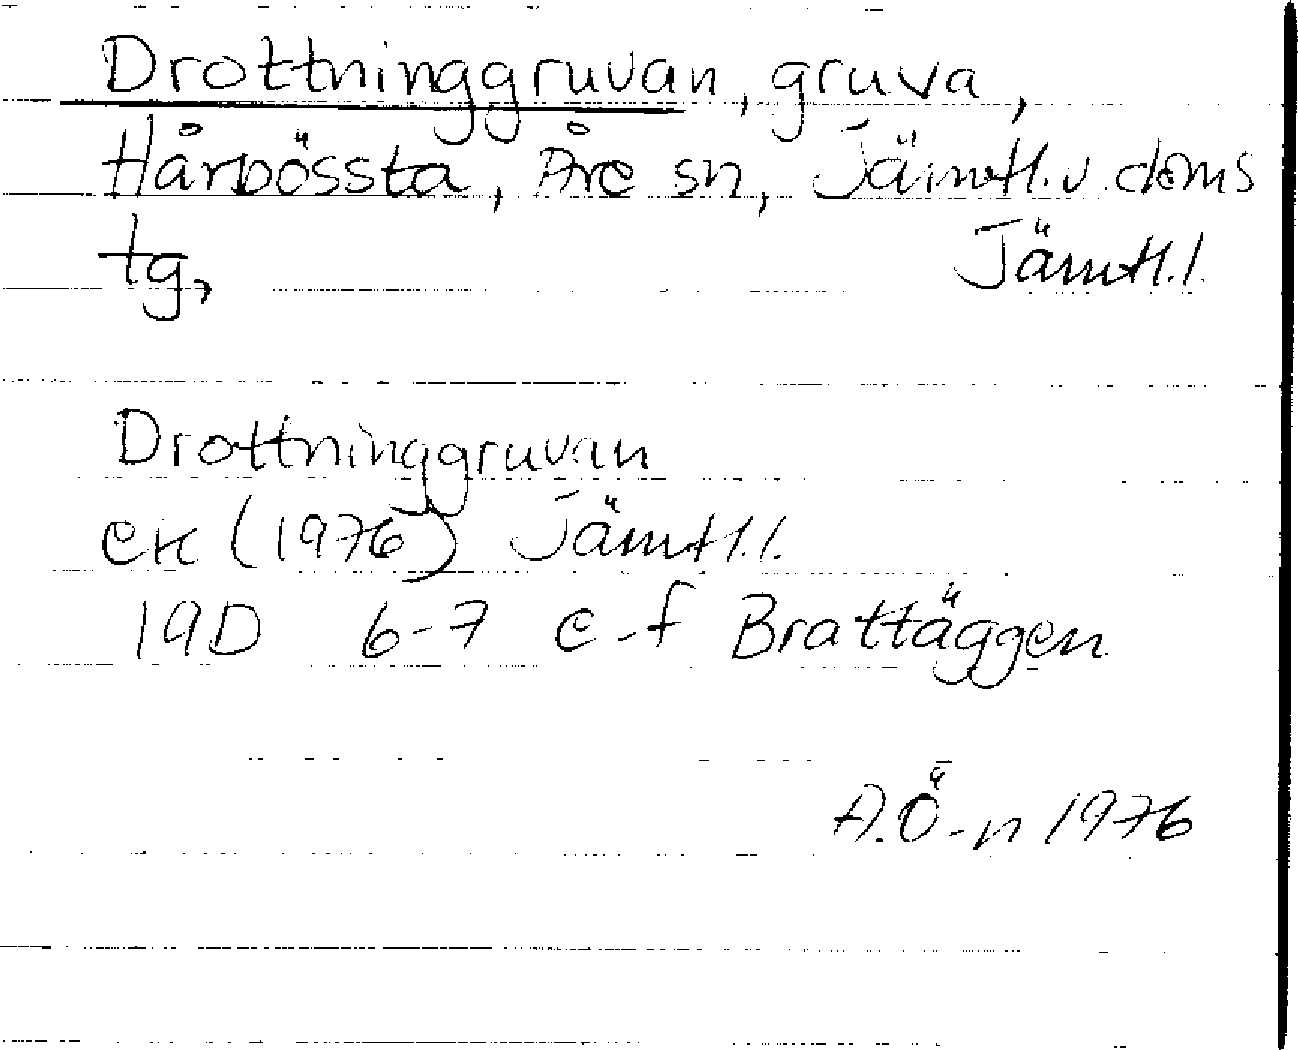 Drottninggruvan, gruva,
Hårbössta, Åre sn, Jämtl. v. doms
tg, Jämtl. l.
Drottninggruvan
ek (1976) Jämtl. l.
19D 6-7 e-f Brattäggen
A. Ö-n 1976